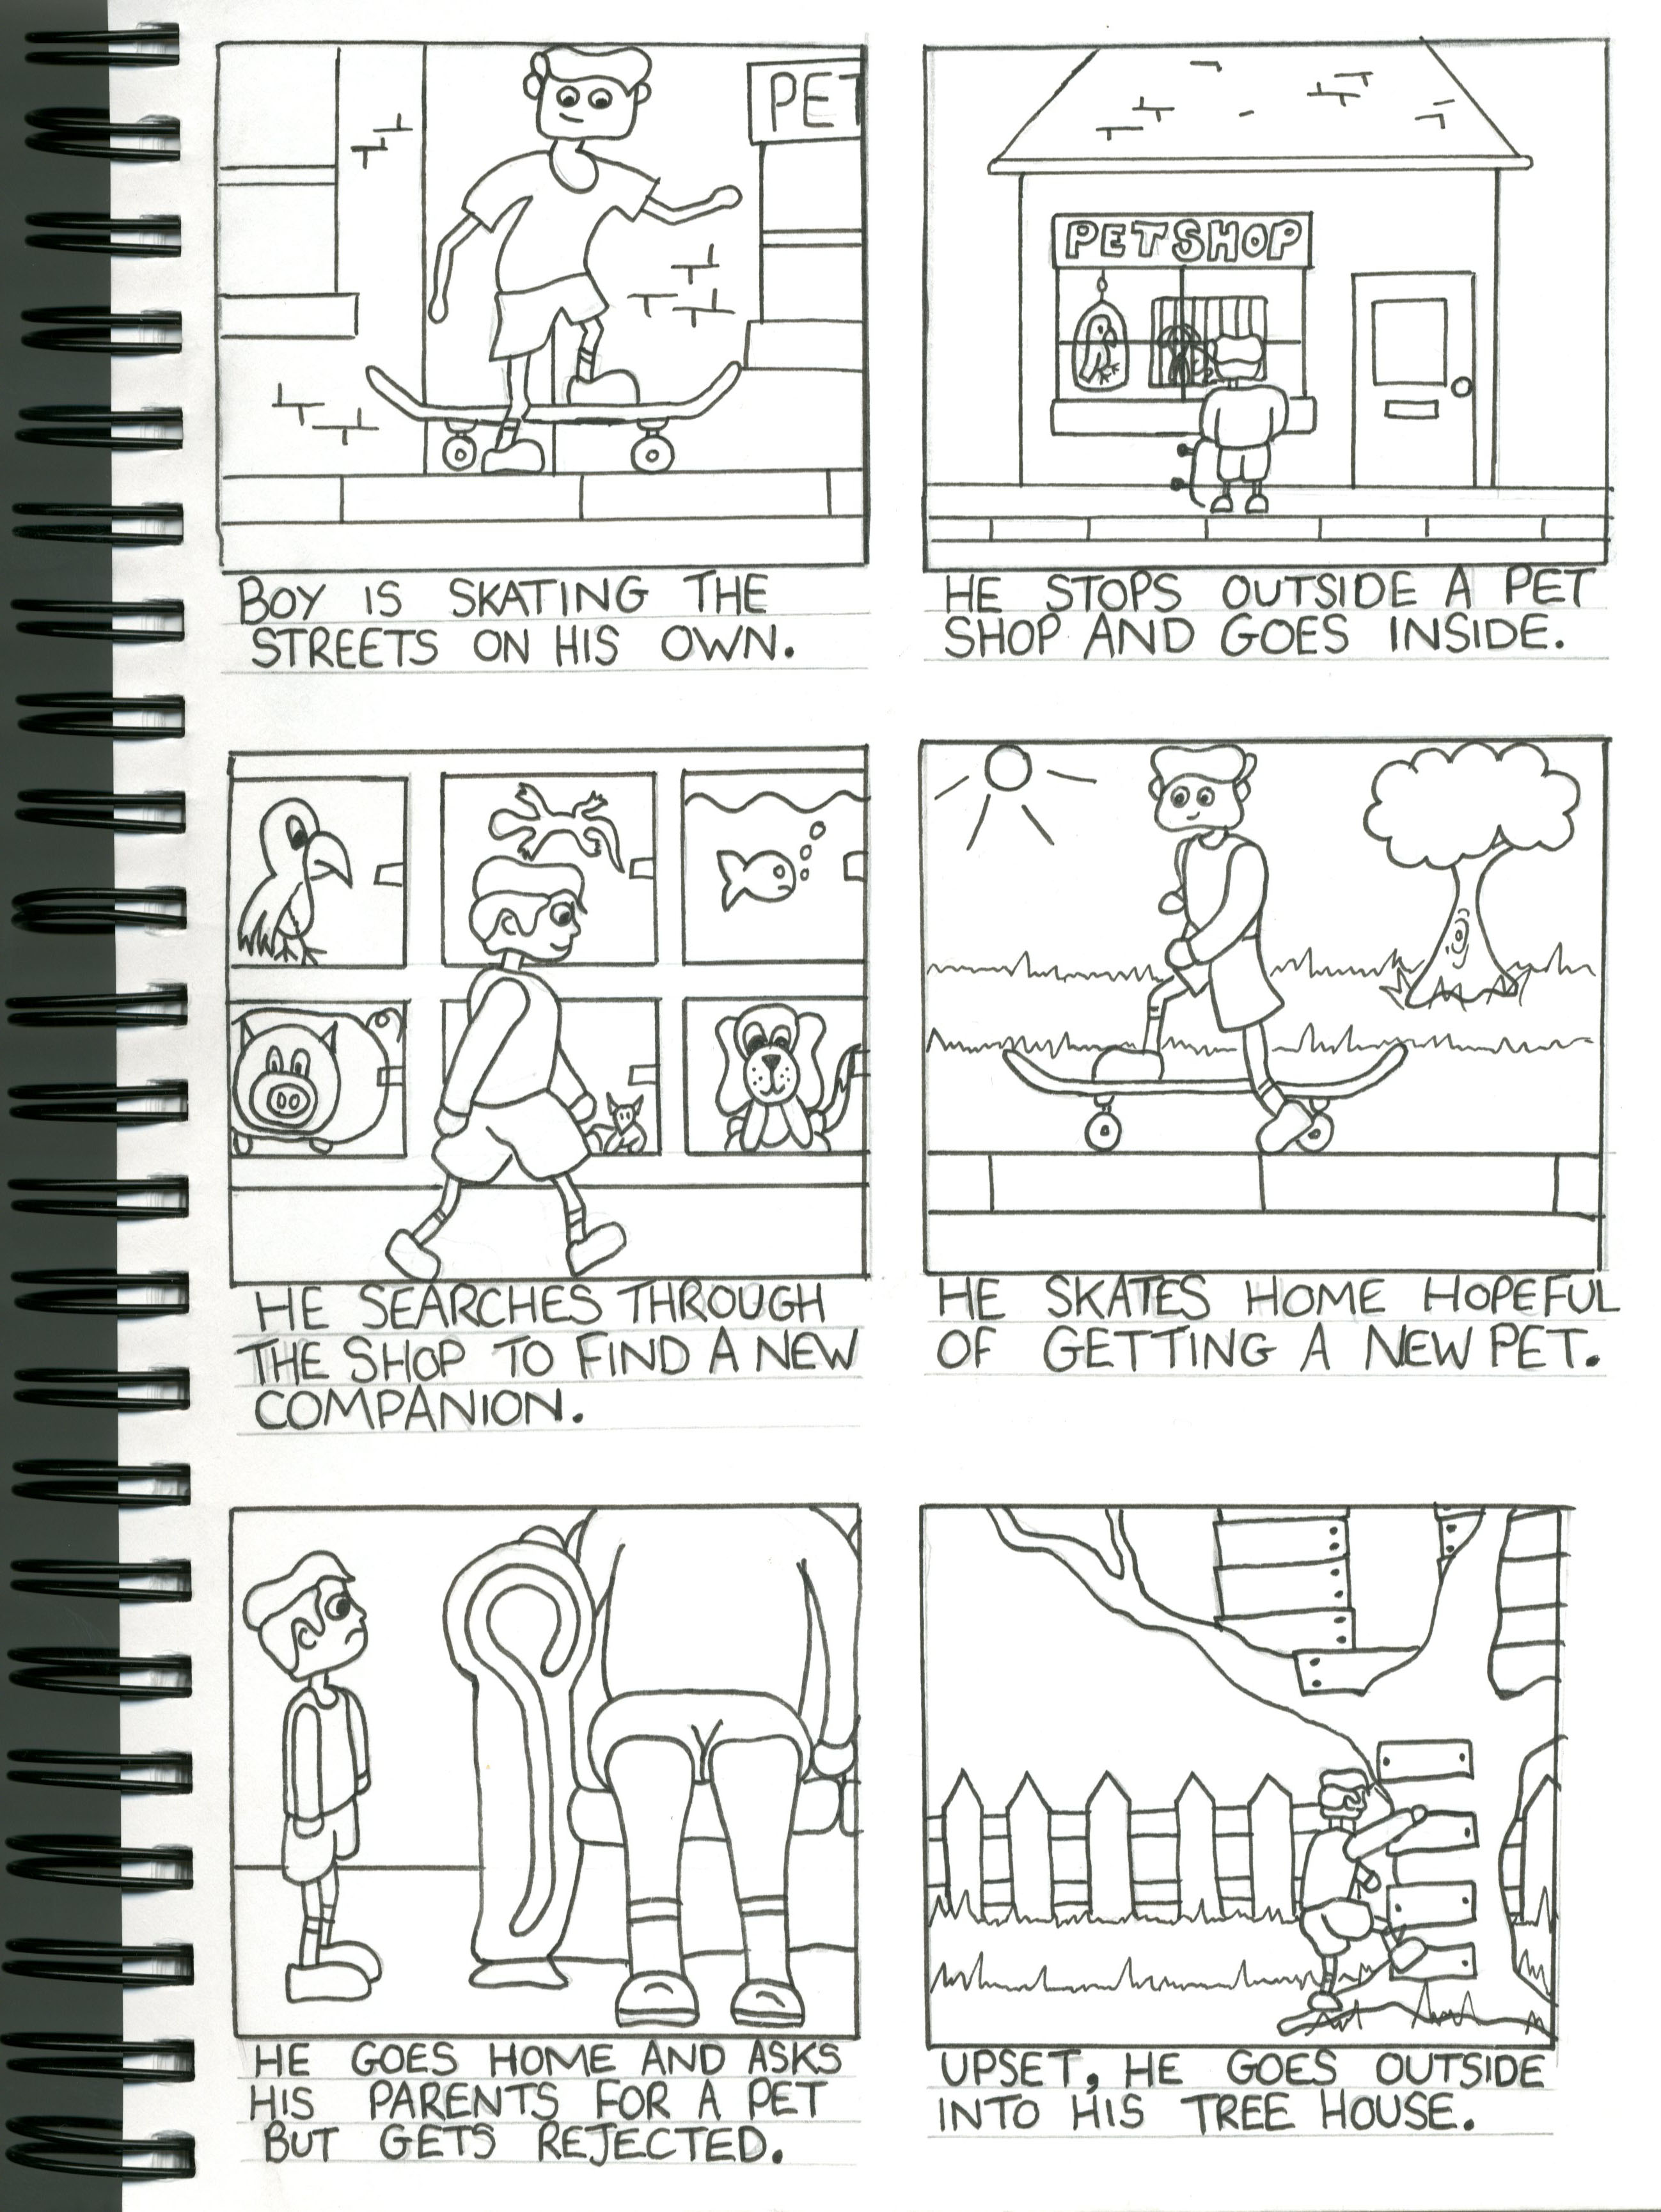 PET
BOY IS SKATING THE
STREETS ON HIS OWN.
PETSHOP
HE STOPS OUTSIDE A PET
SHOP AND GOES INSIDE.
HE SEARCHES THROUGH
THE SHOP TO FIND A NEW
COMPANION.
HE SKATES HOME HOPEFUL
OF GETTING A NEW PET.
HE GOES HOME AND ASKS
HIS PARENTS FOR A PET
BUT GETS REJECTED.
UPSET, HE GOES OUTSIDE
INTO HIS TREE HOUSE.